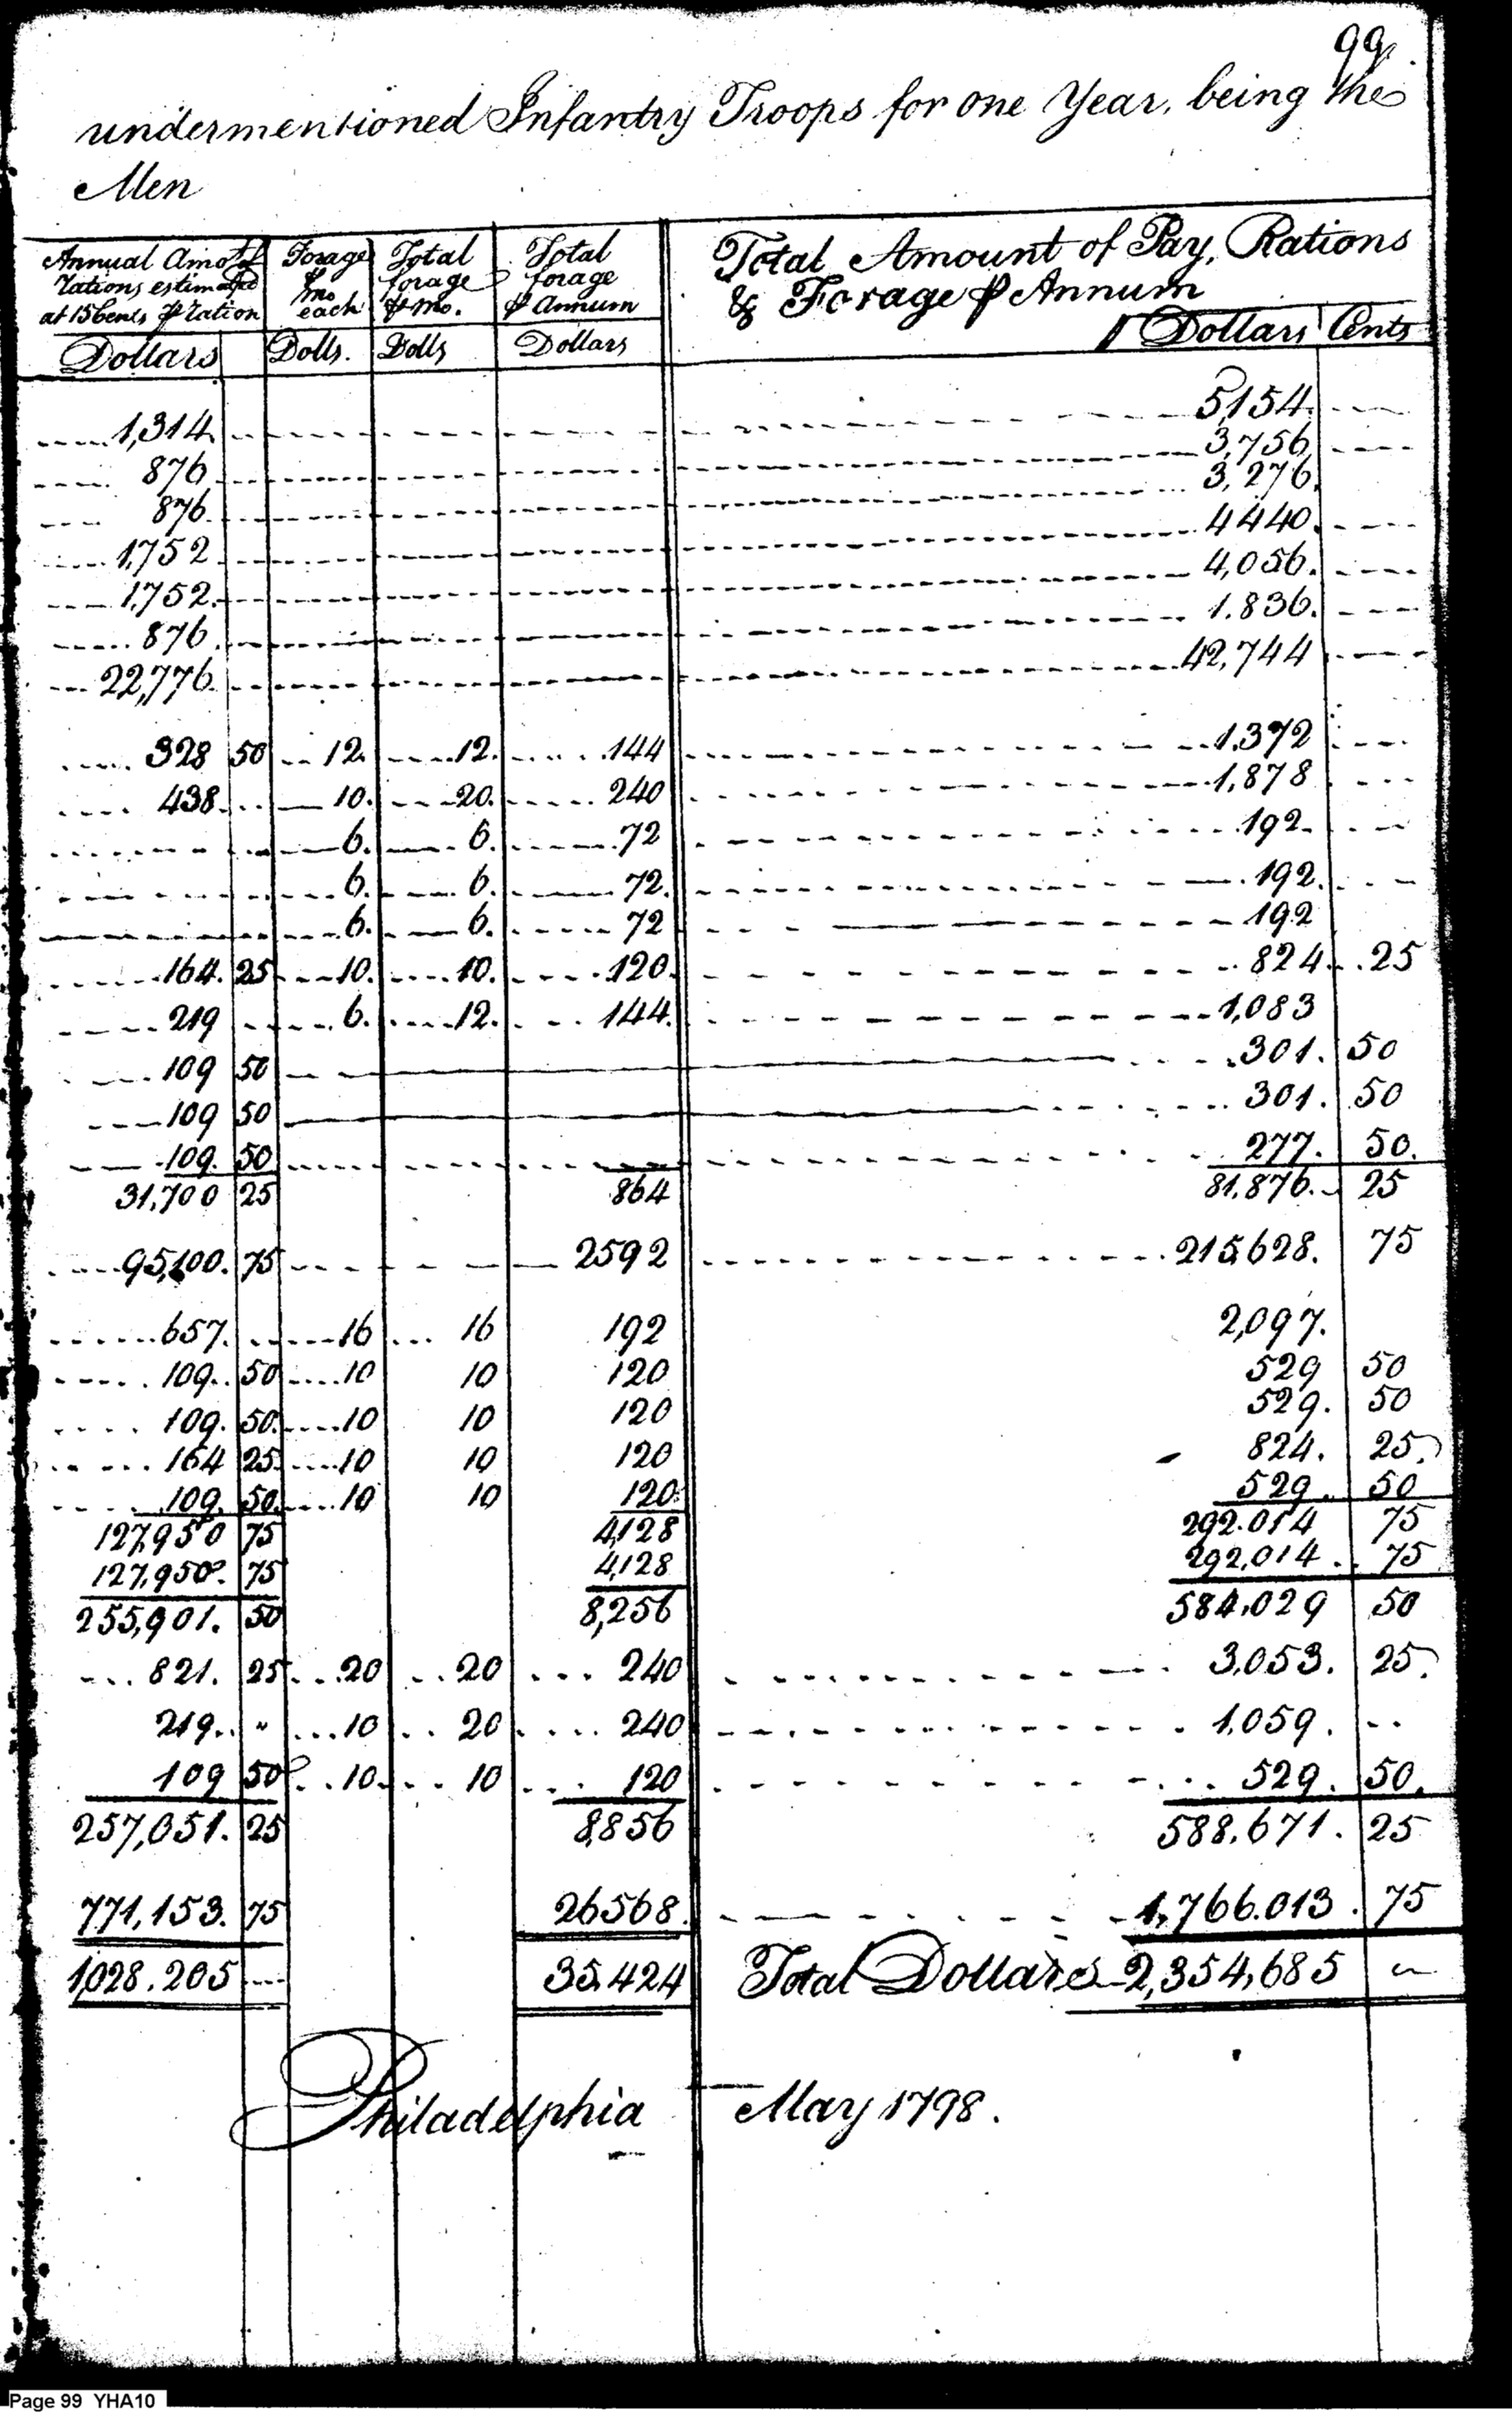 99.
undermentioned Infantry Troops for one Year, being the
Men
Annual Amot. of rations estimated at 15 Cents ⅌ ration | Forage ⅌ mo each | Total forage ⅌ mo. | Total forage ⅌ Annum | Total Amount of Pay, Rations & Forage ⅌ Annum
Dollars | Dolls. | Dolls | Dollars | Dollars | Cents
1,314 5,154.
876 3,756
876 3,276.
1,752 4440.
1,752. 4,056.
876 1.836.
22,776 42,744
328 50 12. 12. 144 1,372
438 10. 20. 240 1,878
6. 6. 72 192
6. 6. 72. 192.
6. 6. 72 192
164. 25 10. 10. 120. 824 25
219 6. 12. 144. 1,083
109 50 301. 50
109 50 301. 50
109. 50 277. 50.
31,700 25 864 81,876. 25
95,100. 75 2592 215628. 75
657. 16 16 192 2,097.
109. 50 10 10 120 529 50
109. 50. 10 10 120 529. 50
164 25 10 10 120 824. 25.
109. 50. 10 10 120 529. 50
127,950 75 4,128 292.014 75
127,950. 75 4,128 292,014 75
255,901. 50 8,256 584,029 50
821. 25 20 20 240 3,053. 25.
219. " 10 20 240 1,059.
109 50 10 10 120 529. 50.
257,051. 25 8,856 588,671. 25
771,153. 75 26568. 1,766.013. 75
1,028.205 35,424 Total Dollars 2,354,685
Philadelphia May 1798.
Page 99 YHA10